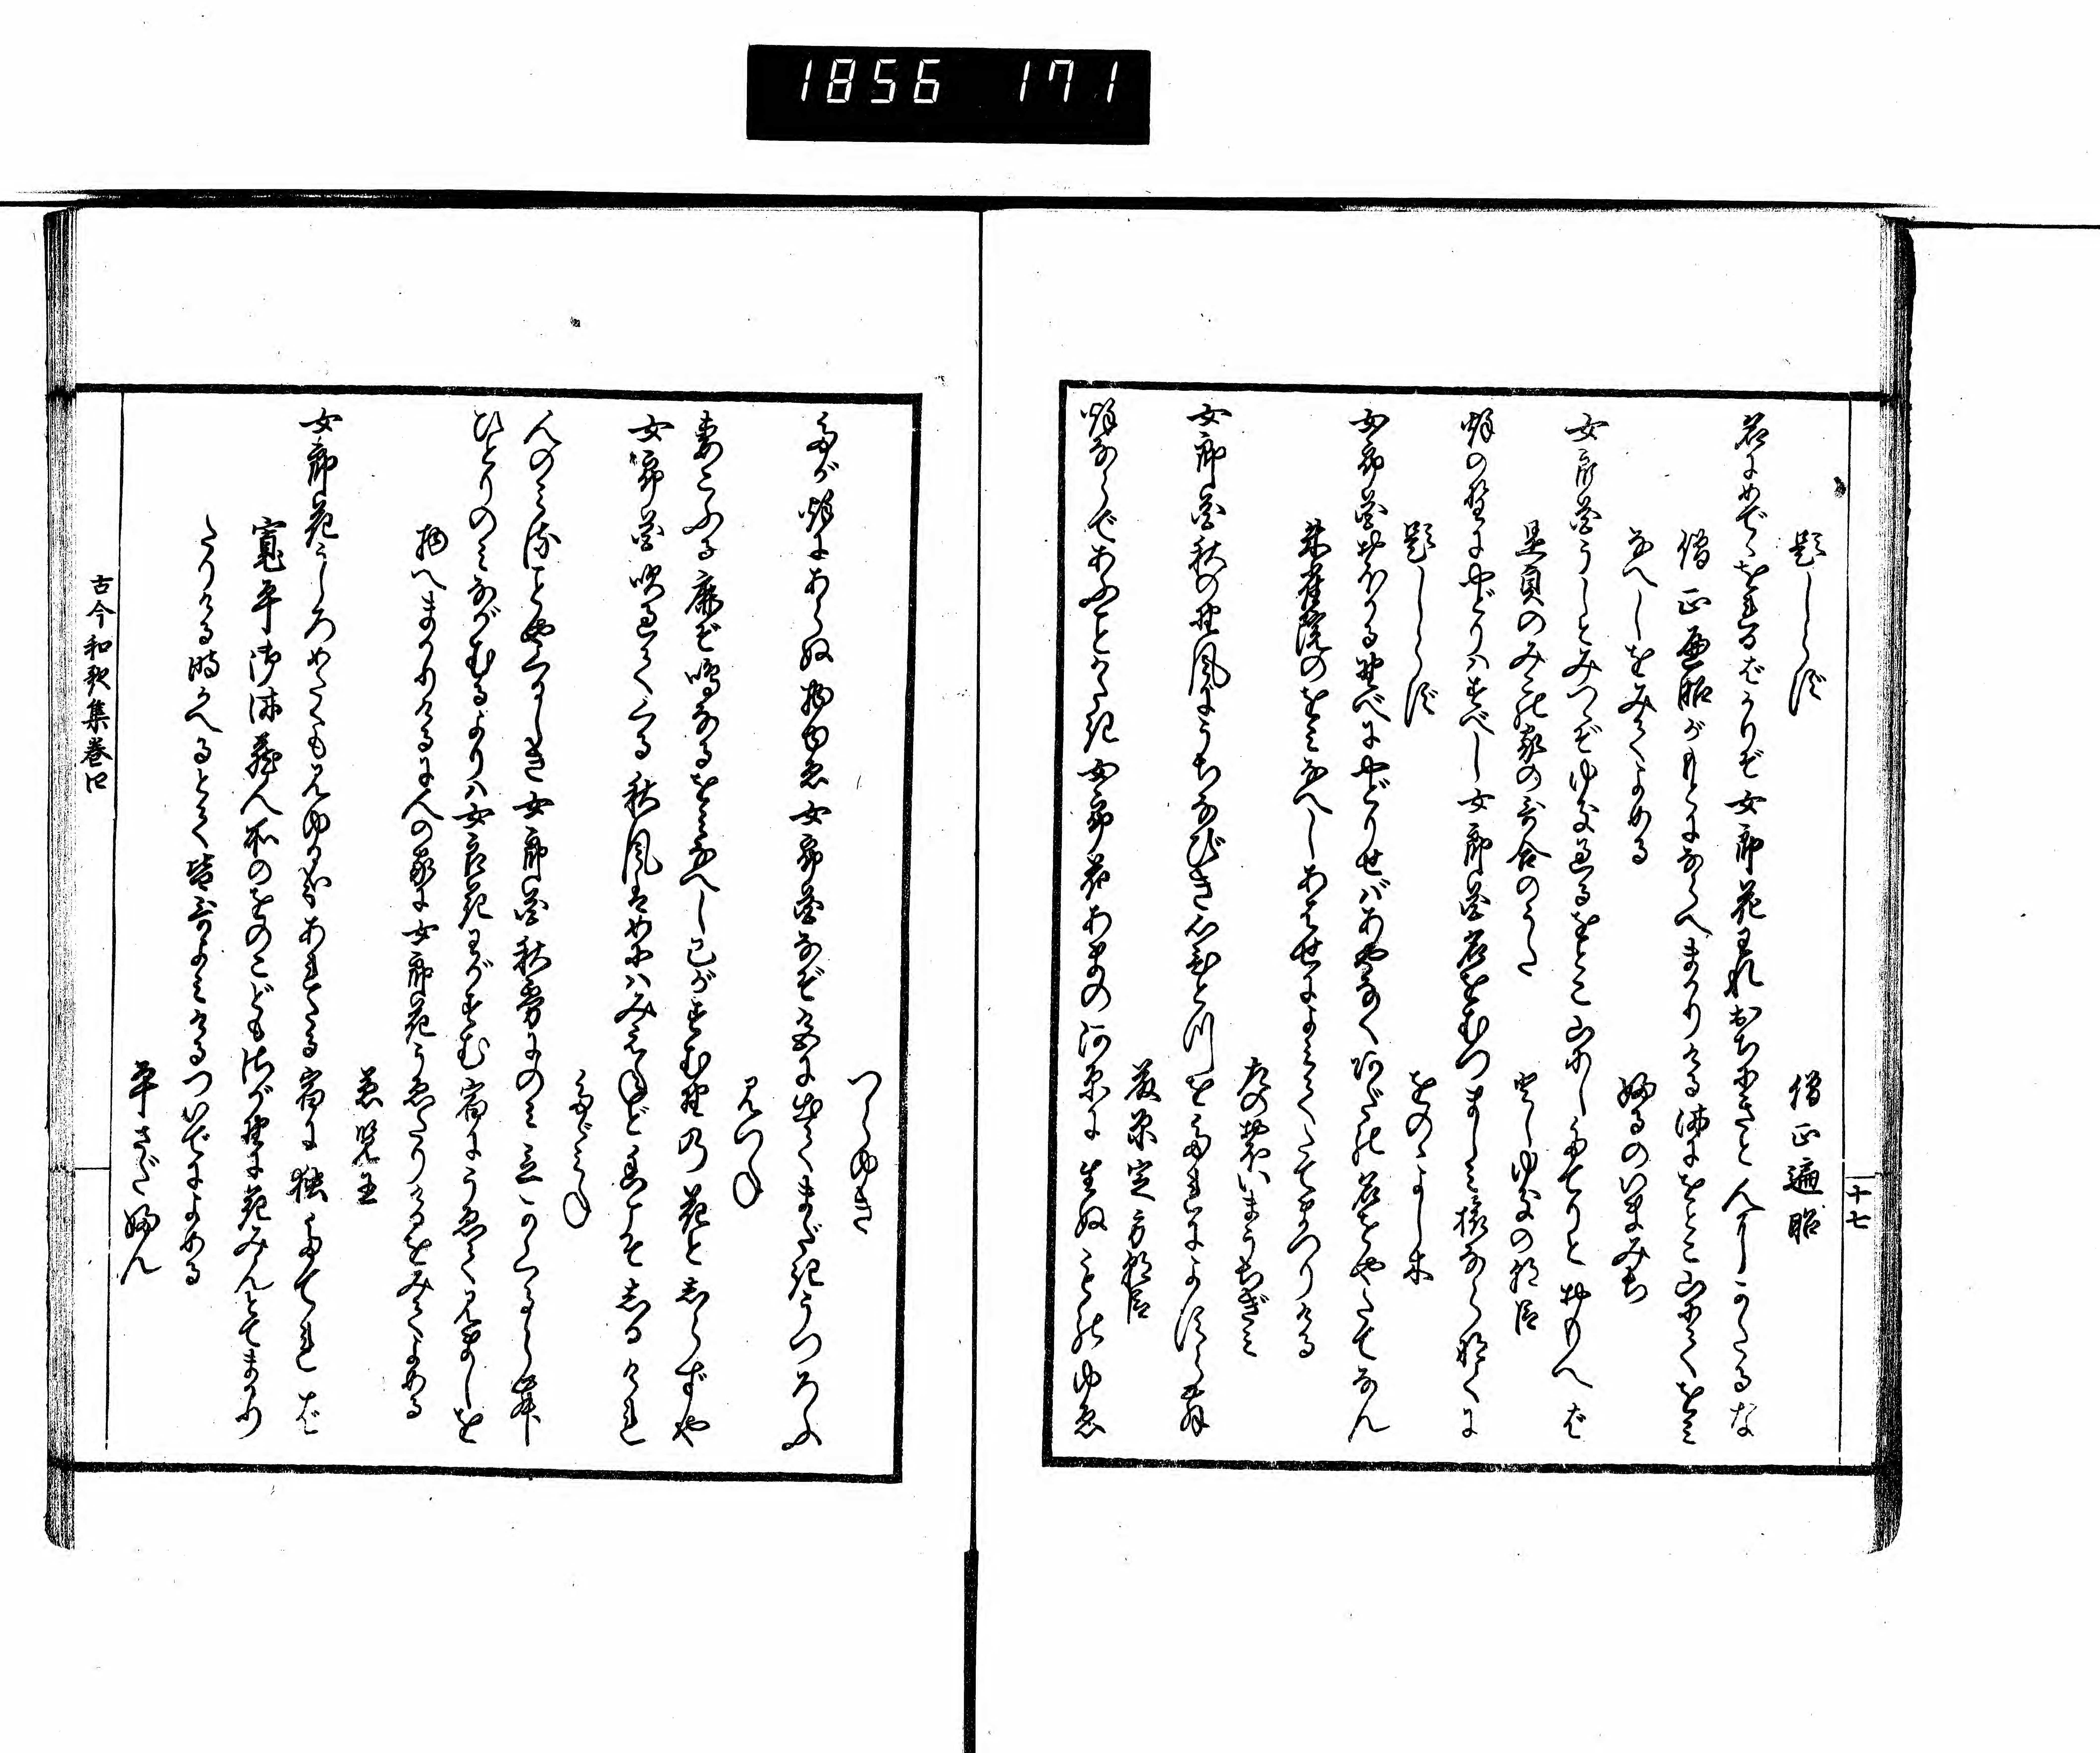 1856 171
十七
題しらず
僧正遍昭
名にめでゝをれるばかりぞ女郎花われおちにきと人にかたるな
僧正遍昭がもとにならへまかりける時にをとこ山にてをみ
なへしをみてよめる
ふるのいまみち
女郎花うしとみつゝぞゆき過るをとこ山にしたてりとおもへば
是貞のみこの家の哥合のうた
としゆきの朝臣
秋の野にやどりはすべし女郎花名をむつましみ旅ならなくに
題しらず
をのゝよし木
女郎花おほかる野べにやどりせばあやなくあだの名をやたてなん
朱雀院のをみなへしあはせによみてたてまつりける
左のおほいまうちぎみ
女郎花秋の野風にうちなびき心ひとつをたれによすらん
藤原定方朝臣
秋ならであふことかたき女郎花あまの河原に生ぬものゆゑ
つらゆき
たが秋にあらぬ物ゆゑ女郎花なぞ色に出てまだきうつろふ
みつね
妻こふる鹿ぞ鳴なるをみなへし己がすむ野の花としらずや
女郎花吹過てくる秋風はめにはみえねど香こそしるけれ
たゞみね
人のみることやくるしき女郎花秋霧にのみ立かくるらむ
ひとりのみながむるよりは女郎花わがすむ宿にうゑてみましを
物へまかりけるに人の家に女郎花うゑたりけるをみてよめる
兼覧王
女郎花うしろめたくもみゆるかなあれたる宿に独たてれば
寛平御時蔵人所のをのこども嵯峨野に花みんとてまかり
たりける時かへるとて皆哥よみけるついでによめる
平さだふん
古今和歌集巻四